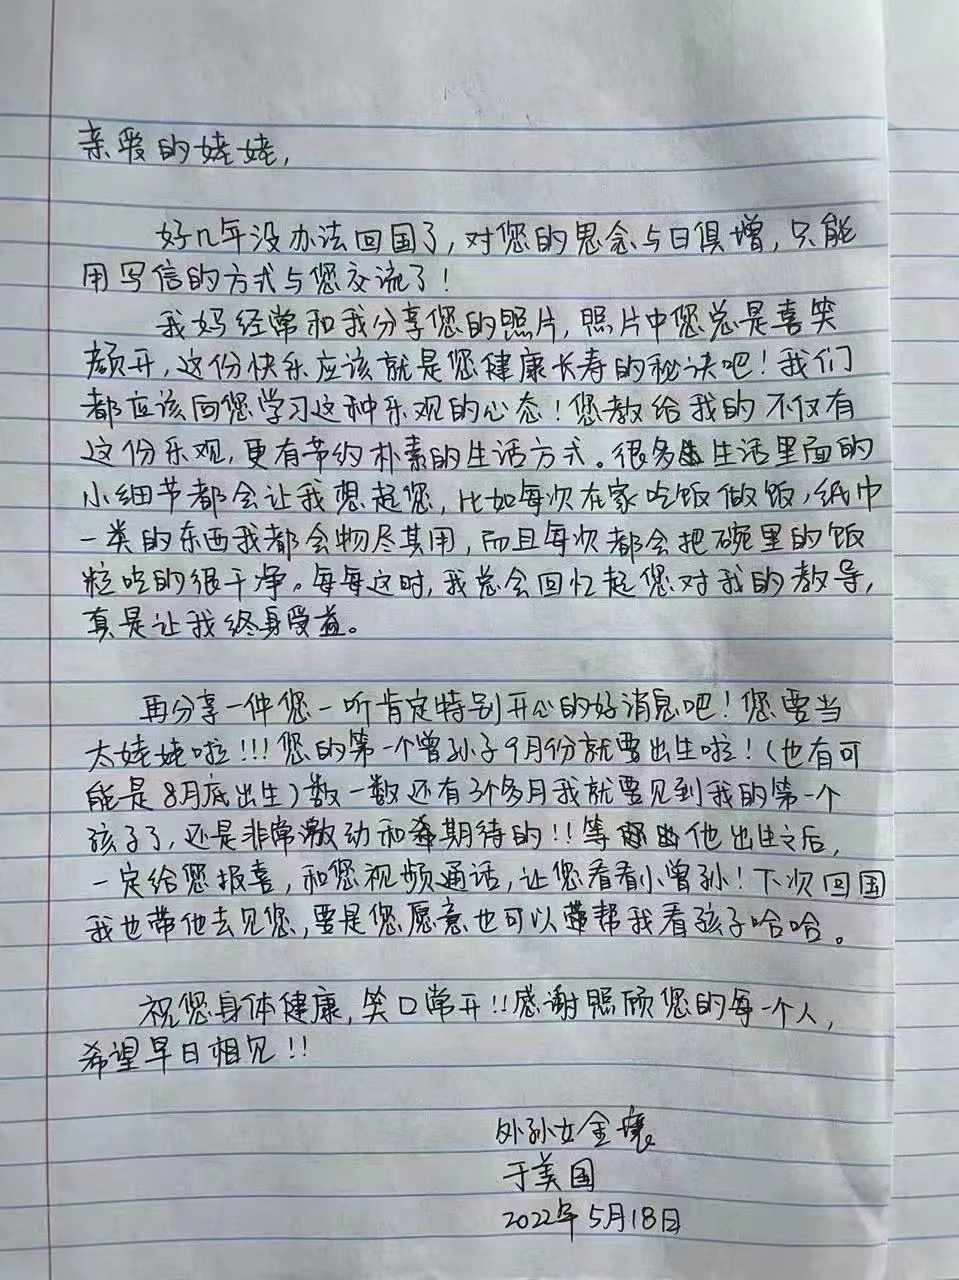 亲爱的姥姥,
好几年没办法回国了,对您的思念与日俱增,只能
用写信的方式与您交流了!
我妈经常和我分享您的照片,照片中您总是喜笑
颜开,这份快乐应该就是您健康长寿的秘诀吧!我们
都应该向您学习这种乐观的心态!您教给我的不仅有
这份乐观,更有节约朴素的生活方式。很多生活里面的
小细节都会让我想起您,比如每次在家吃饭做饭,纸巾
一类的东西我都会物尽其用,而且每次都会把碗里的饭
粒吃的很干净。每每这时,我总会回忆起您对我的教导,
真是让我终身受益。
再分享一件您一听肯定特别开心的好消息吧!您要当
太姥姥啦!!!您的第一个曾孙子9月份就要出生啦!(也有可
能是8月底出生)数一数还有3个多月我就要见到我的第一个
孩子了,还是非常激动和期待的!!等他出生之后,
一定给您报喜,和您视频通话,让您看看小曾孙!下次回国
我也带他去见您,要是您愿意也可以帮我看孩子哈哈。
祝您身体健康,笑口常开!!感谢照顾您的每一个人,
希望早日相见!!
外孙女金
于美国
2022年5月18日